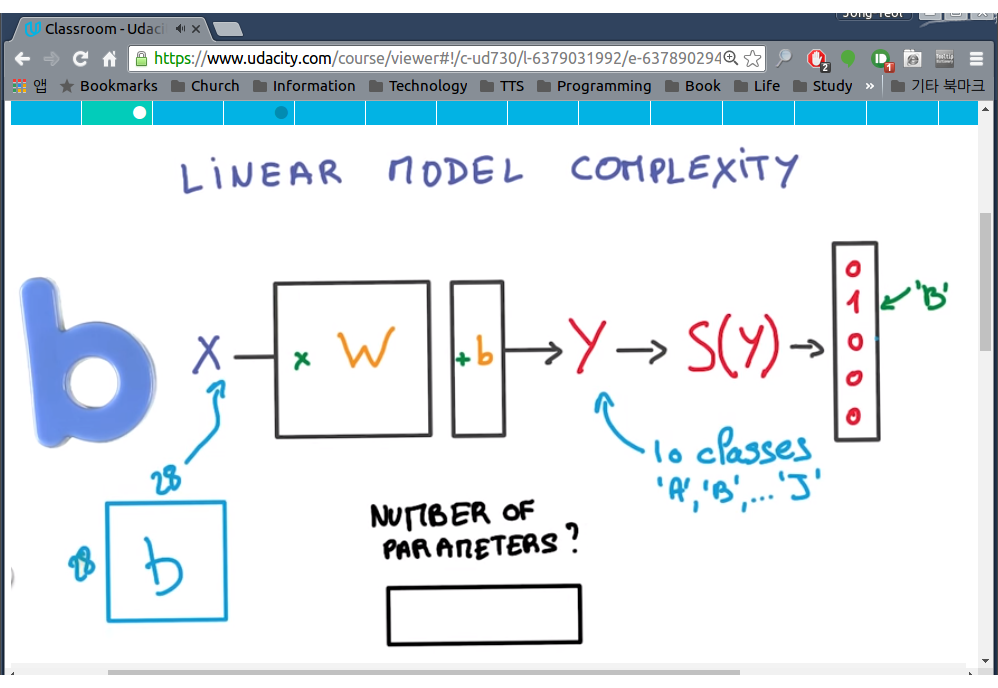 Jong Yeol
Classroom - Udaci
https://www.udacity.com/course/viewer#!/c-ud730/l-6379031992/e-637890294
2
1
앱 Bookmarks Church Information Technology TTS Programming Book Life Study » 기타 북마크
LINEAR MODEL COMPLEXITY
b X x W + b Y S(Y)
0
1
0
0
0
'B'
10 classes
'A', 'B', ... 'J'
28
28
b
NUMBER OF
PARAMETERS?